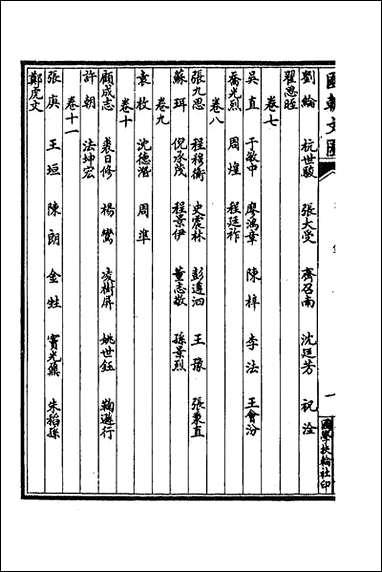 國朝文匯
一
國學扶輪社印
劉綸 杭世駿 張大受 齊召南 沈廷芳 祝洤
翟思晊
卷七
吳直 于敏中 廖鴻章 陳梓 李法 王會汾
喬光烈 周煌 程廷祚
卷八
張九思 程穆衡 史震林 彭遵泗 王豫 張秉直
蘇珥 倪承茂 程景伊 董志敬 孫景烈
卷九
袁枚 沈德潛 周準
卷十
顧成志 裘日修 楊鸞 凌樹屏 姚世鈺 鞠遜行
許朝 法坤宏
卷十一
張庚 王垣 陳朗 金甡 竇光鼐 朱稻孫
鄭虎文